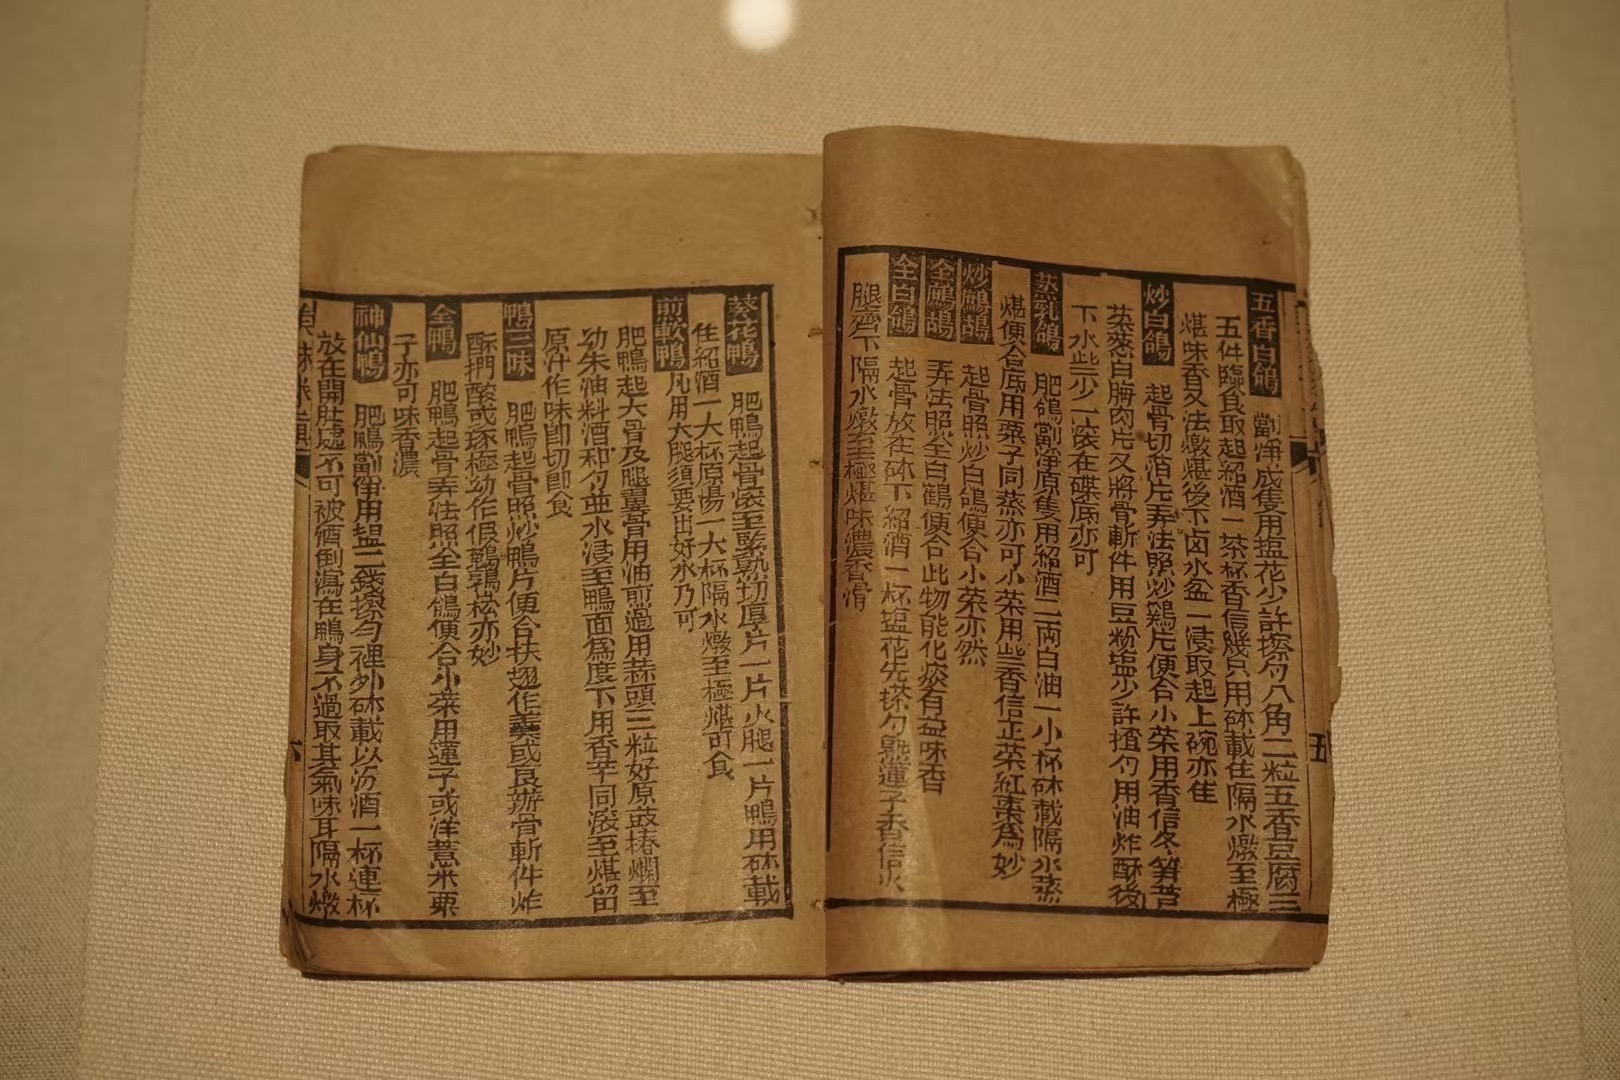 五香白鴿　劏净成隻用塩花少許搽匀八角二粒五香豆腐三
五件臨食取起紹酒二茶杯香信幾只用砵載住隔水燉至極
煁味香又法燉煁後下卤水盆一浸取起上碗亦佳
炒白鴿　起骨切薄片弄法照炒鷄片便合小菜用香信冬笋
菜葱白腩肉片又將骨斬件用豆粉塩少許揸匀用油炸酥後
下水些少一滚在碟底亦可
蒸乳鴿　肥鴿劏淨原隻用紹酒二両白油一小杯砵載隔水蒸
煁便合底用栗子同蒸亦可小菜用些香信正菜紅棗為妙
炒鷓鴣　起骨照炒白鴿便合小菜亦然
全鷓鴣　弄法照全白鴿便合此物能化痰有益味香
全白鴿　起骨放在砵下紹酒一杯塩花先搽匀熟蓮子香信火
腿齊下隔水燉至極煁味濃香滑
五
葵花鴨　肥鴨起骨滚至緊熟切厚片一片火腿一片鴨用砵載
住紹酒一大杯原湯一大杯隔水燉至極煁可食
凡用大腿須要出好水乃可
煎軟鴨　肥鴨起大骨及腿翼骨用油煎過用蒜頭三粒好原豉摏爛至
幼朱油料酒和匀並水浸至鴨面為度下用香芋同滚至煁留
原汁作味即切即食
鴨三味　肥鴨起骨照炒鴨片便合扶翅作羹或良辦骨斬件炸
酥捫酸或琢極幼作假鵪鶉松亦妙
全鴨　肥鴨起骨弄法照全白鴿便合小菜用蓮子或洋薏米栗
子亦可味香濃
神仙鴨　肥鴨劏淨用塩二錢搽匀裡外砵載以汾酒一杯連杯
放在開肚處不可被酒倒瀉在鴨身不過取其氣味耳隔水燉
六